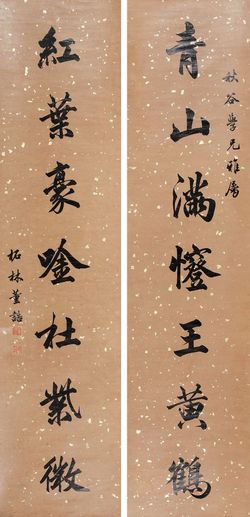 秋谷學兄雅屬
青山滿㡧王黃鶴
紅葉豪唫杜紫微
柘林董誥